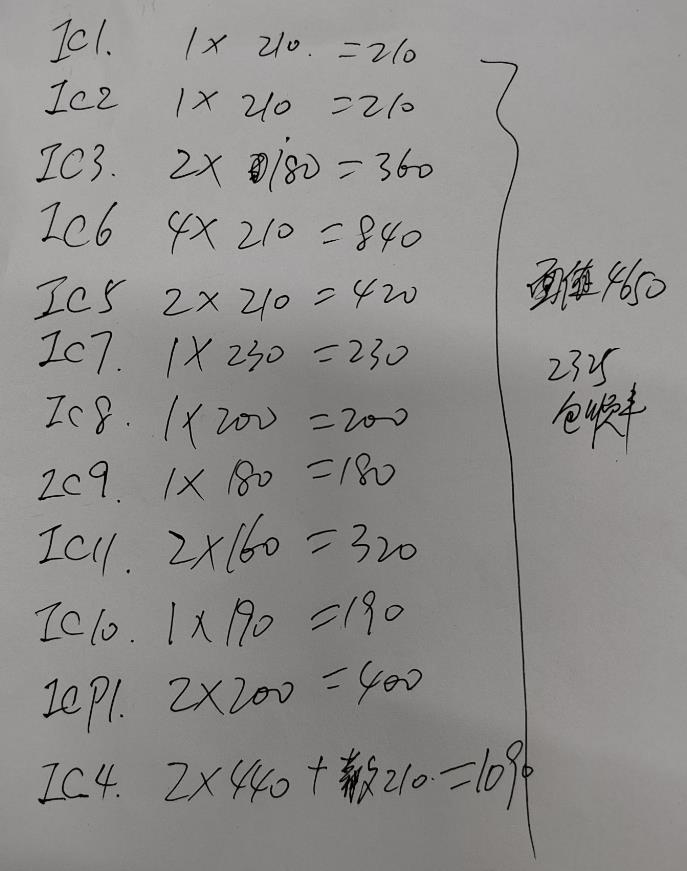 IC1. 1 × 210. = 210
IC2 1 × 210 = 210
IC3. 2 × 180 = 360
IC6 4 × 210 = 840
IC5 2 × 210 = 420
IC7. 1 × 230 = 230
IC8. 1 × 200 = 200
IC9. 1 × 180 = 180
IC11. 2 × 160 = 320
IC10. 1 × 190 = 190
ICP1. 2 × 200 = 400
IC4. 2 × 440 + 散210. = 1090
面值4650
2325
包顺丰